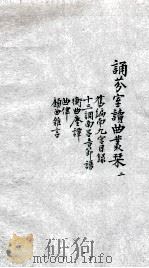 誦芬室讀曲叢栞二
舊編南九宮目錄
十三調南呂音節譜
衡曲麈譚
曲律
顧曲雜言